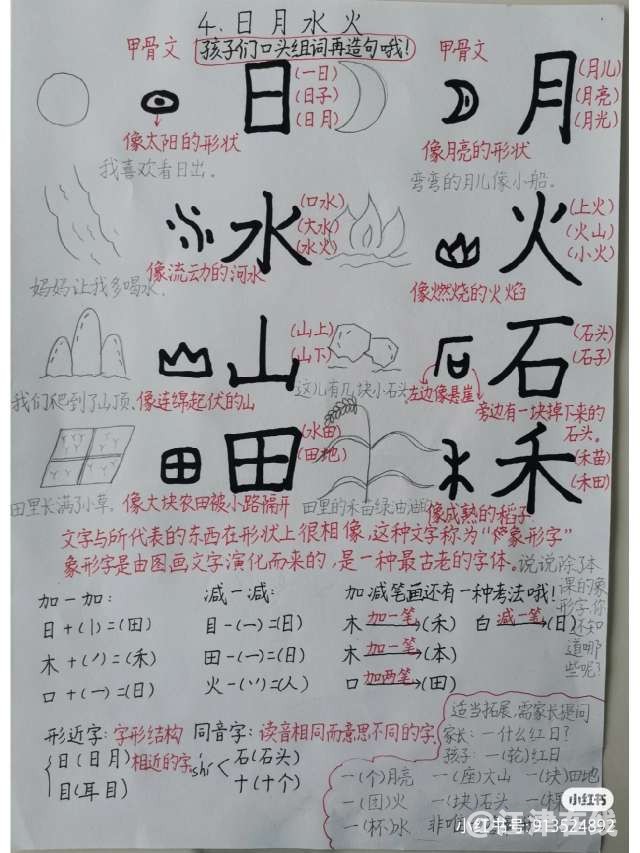 4.日月水火
甲骨文 孩子们口头组词再造句哦! 甲骨文
日 (一日) (日子) (日月)
月 (月儿) (月亮) (月光)
像太阳的形状 像月亮的形状
我喜欢看日出。 弯弯的月儿像小船。
水 (口水) (大水) (水火)
火 (上火) (火山) (小火)
像流动的河水 像燃烧的火焰
妈妈让我多喝水。
山 (山上) (山下)
石 (石头) (石子)
我们爬到了山顶。 像连绵起伏的山 这儿有几块小石头 左边像悬崖 旁边有一块掉下来的
石头。
田 (水田) (田地)
禾 (禾苗) (禾田)
田里长满了小草。 像大块农田被小路隔开 田里的禾苗绿油油 像成熟的稻子
文字与所代表的东西在形状上很相像,这种文字称为“象形字”
象形字是由图画文字演化而来的,是一种最古老的字体。
说说除了本
课的象
形字,你
还知
道哪
些呢?
加一加: 减一减: 加减笔画还有一种考法哦!
日+(丨)=(田) 目-(一)=(日) 木加一笔(禾) 白减一笔(日)
木+(丿)=(禾) 田-(一)=(日) 木加一笔(本)
口+(一)=(日) 火-(丷)=(人) 口加两笔(田)
形近字:字形结构相近的字 同音字:读音相同而意思不同的字
日(日月) shí 石(石头)
目(耳目) 十(十个)
适当拓展,需家长提问
家长:一什么红日?
孩子:一(轮)红日
一(个)月亮 一(座)大山 一(块)田地
一(团)火 一(块)石头 一(棵
一(杯)水 非
小红书
小红书号:913524892
江津在线